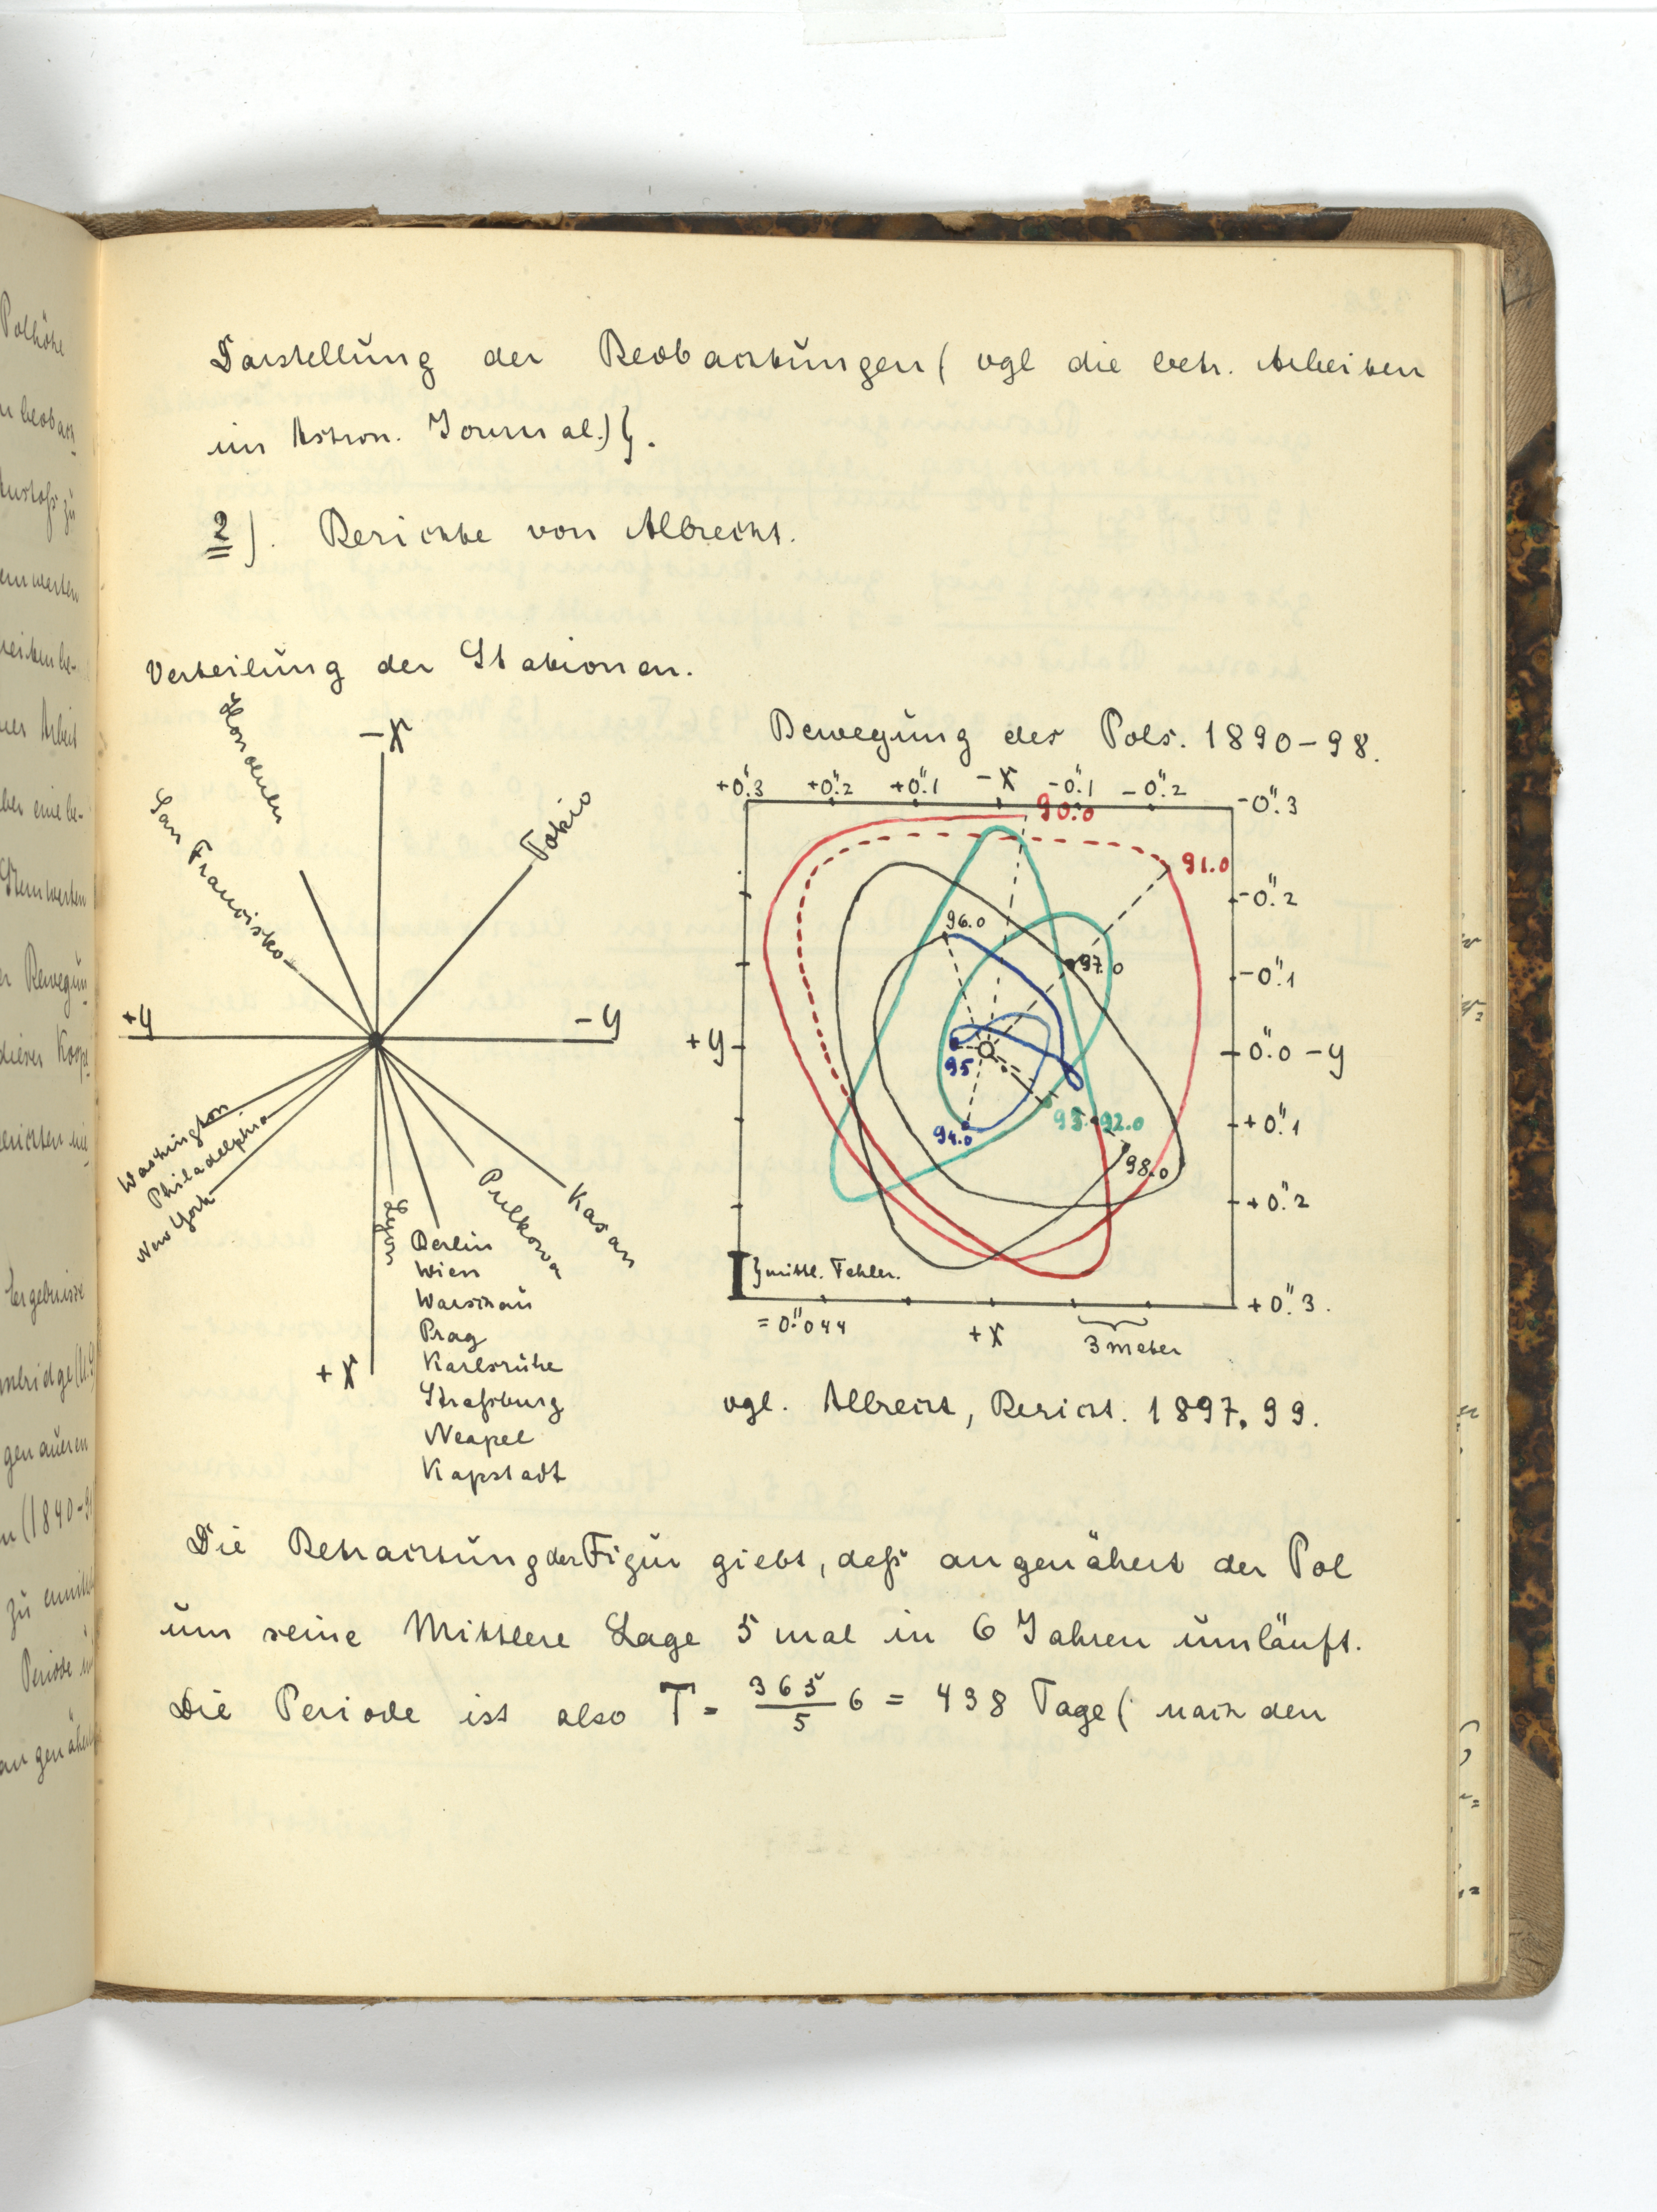 Darstellŭng der Beobachtŭngen ( vgl die betr. Arbeiten
im Astron. Journal.) }.
2). Berichte von Albrecht.
Verteilŭng der Stationen.
Honolulu
San Franzisko
-X
Tokio
+y
-y
Washington
Philadelphia
New York
Lyon
Pulkowa
Kasan
Berlin
Wien
Warschaŭ
Prag
Karlsrŭhe
Straßburg
Neapel
Kapstadt
+X
Bewegŭng des Pols. 1890-98.
+0".3 +0".2 +0".1 -X -0".1 -0".2 -0".3
90.0
91.0
-0".2
96.0
97.0
-0".1
+y
95
0".0 -y
94.0
93. 92.0
+0".1
98.0
+0".2
} mittl. Fehler.
= 0".044
+X
3 meter
+0".3.
vgl. Albrecht, Bericht. 1897. 99.
Die Betrachtŭng der Figŭr giebt, daß angenähert der Pol
ŭm seine Mittlere Lage 5 mal in 6 Jahren ŭmläŭft.
Die Periode ist also T = 365/5 6 = 438 Tage ( nach den
Polhöhe